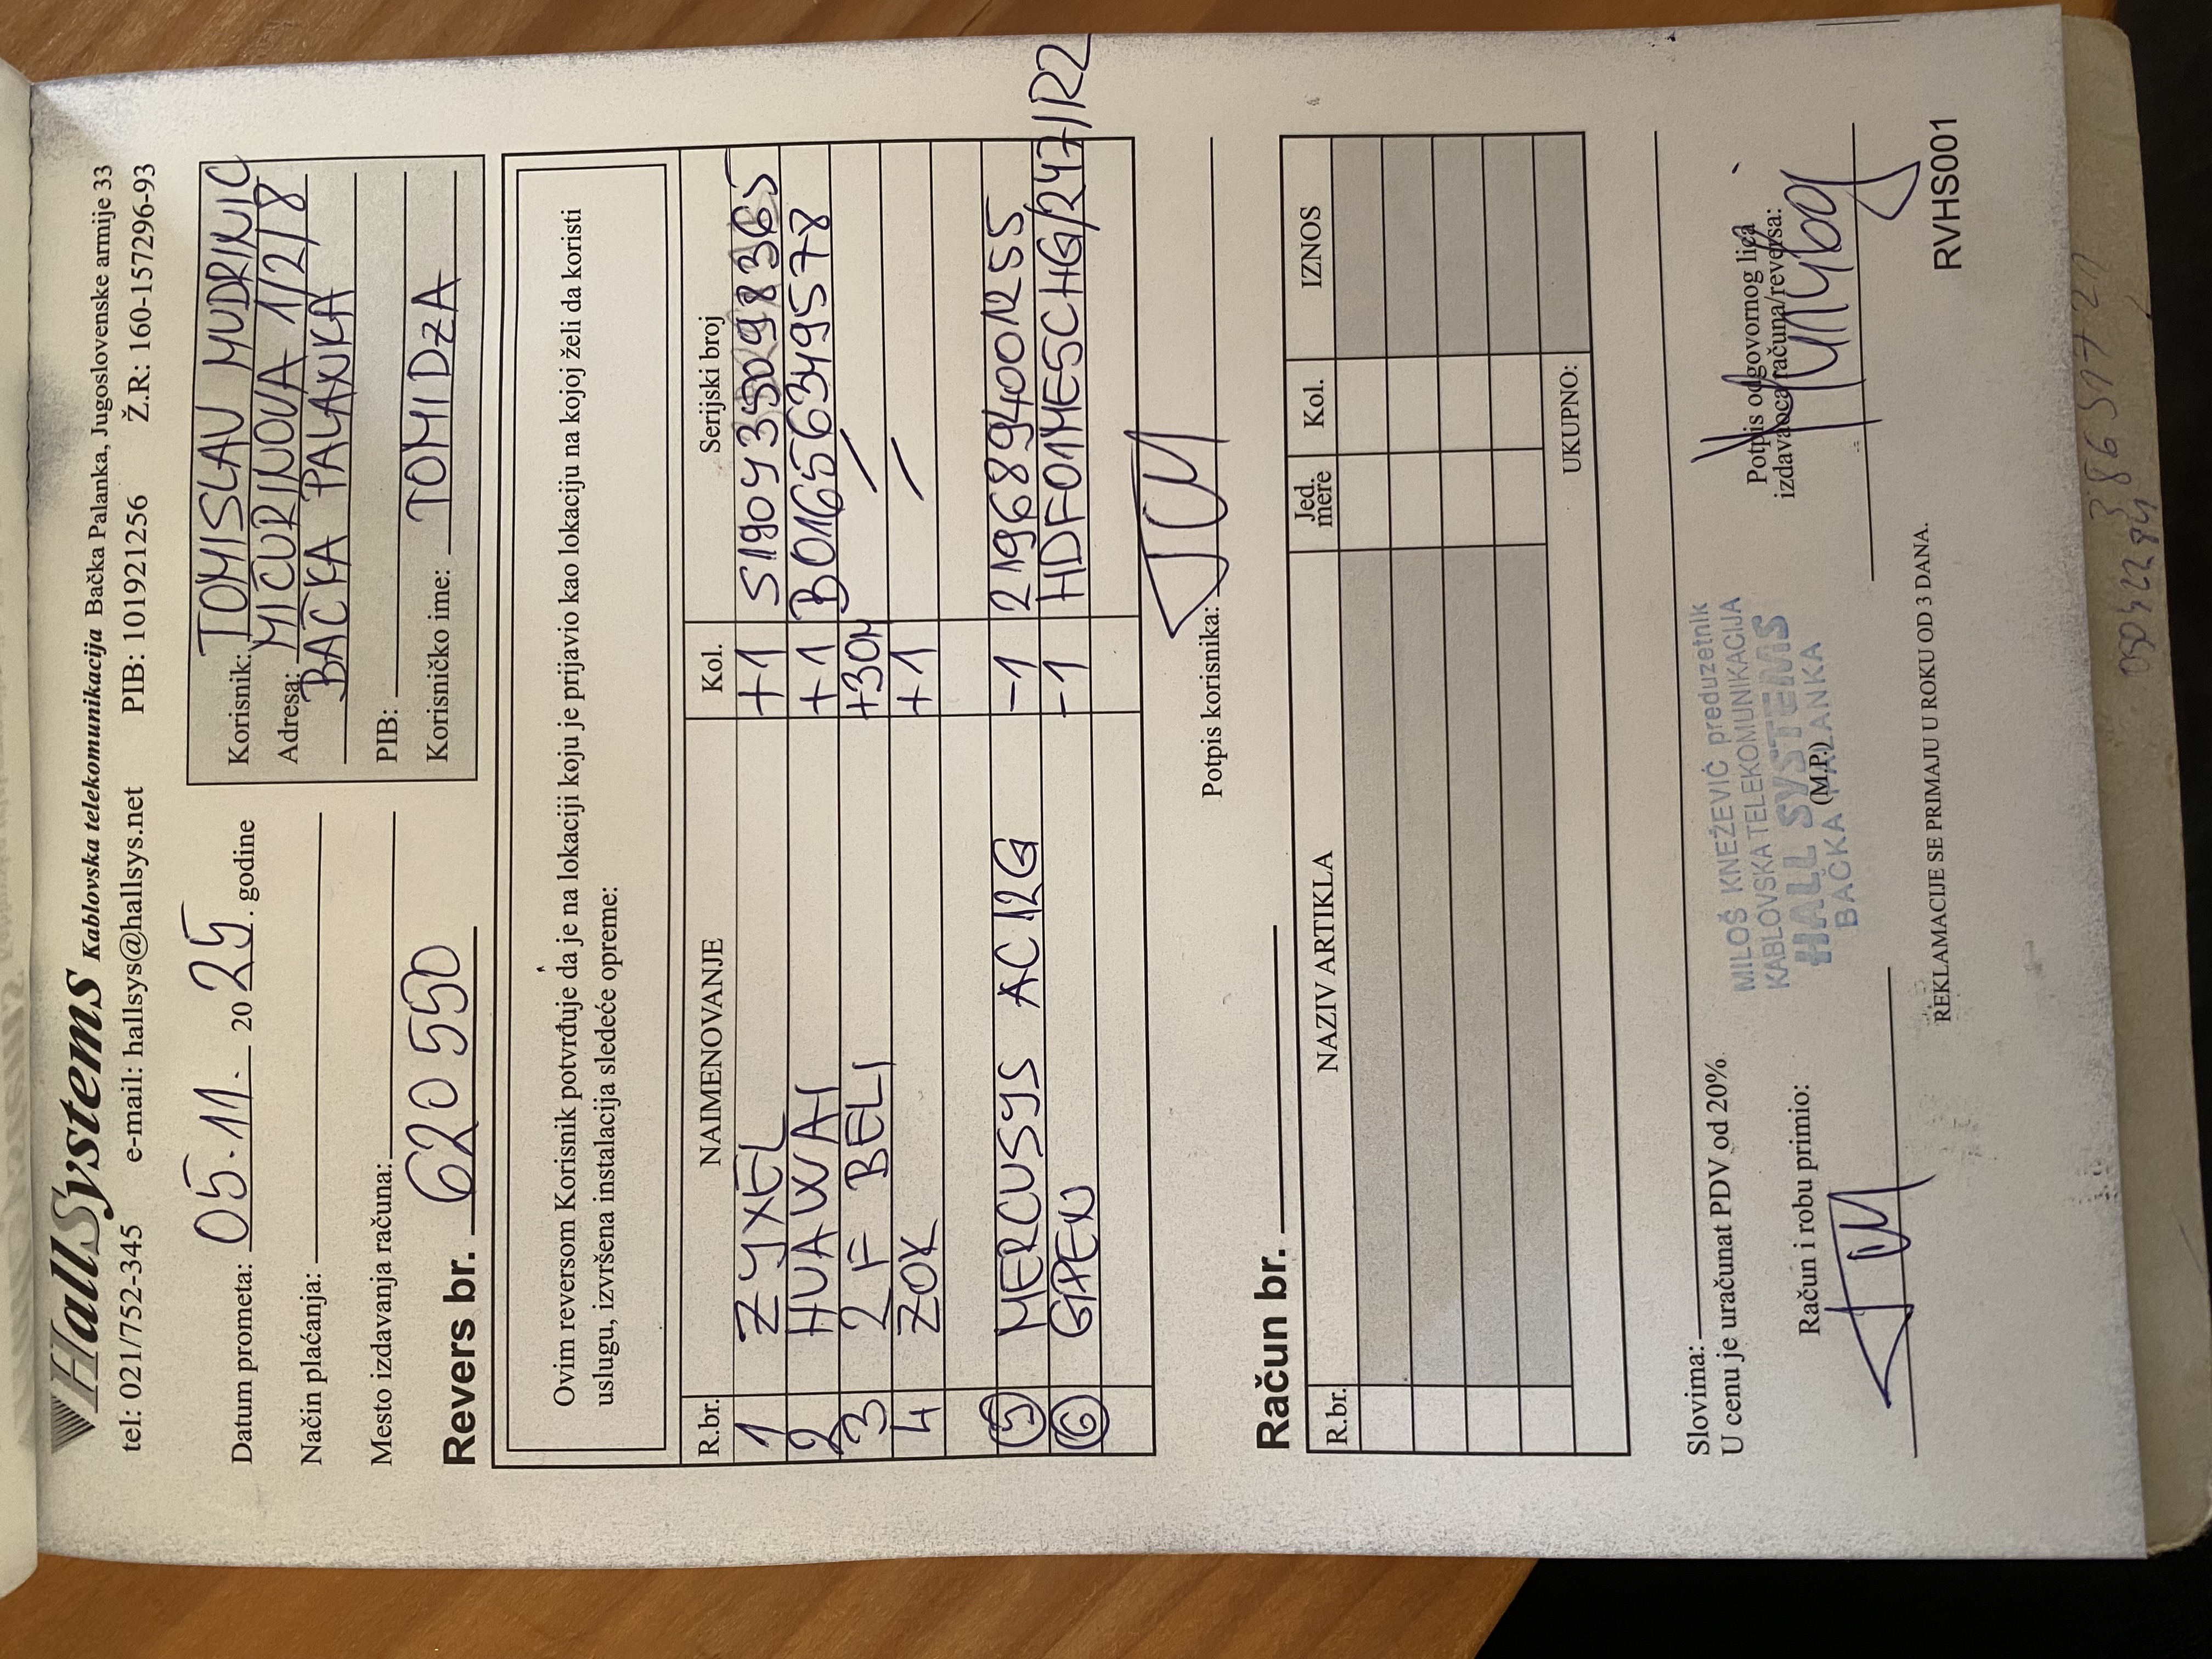 HallSystems Kablovska telekomunikacija Bačka Palanka, Jugoslovenske armije 33
tel: 021/752-345 e-mail: hallsys@hallsys.net PIB: 101921256 Ž.R: 160-157296-93
Datum prometa: 05.11. 20 25. godine
Način plaćanja:
Mesto izdavanja računa:
Korisnik: TOMISLAV MUDRINIĆ
Adresa: MIČURINOVA 1/2/8
BAČKA PALANKA
PIB:
Korisničko ime: TOMIDZA
Revers br. 620 550
Ovim reversom Korisnik potvrđuje da je na lokaciji koju je prijavio kao lokaciju na kojoj želi da koristi
uslugu, izvršena instalacija sledeće opreme:
R.br. NAIMENOVANJE Kol. Serijski broj
1 ZYXEL +1 S190Y35098365
2 HUAWAI +1 B01656349578
3 2 F BELI +30M /
4 ZOK +1 /
5 MERCUSYS AC12G -1 2196894001255
6 GPEN -1 HDF01ME5CHG/247/R2
Potpis korisnika:
Račun br.
R.br. NAZIV ARTIKLA Jed. mere Kol. IZNOS
UKUPNO:
Slovima:
U cenu je uračunat PDV od 20%
Račun i robu primio:
MILOŠ KNEŽEVIĆ preduzetnik
KABLOVSKA TELEKOMUNIKACIJA
HALL SYSTEMS
(M.P.)
BAČKA PALANKA
Potpis odgovornog lica
izdavaoca računa/reversa:
REKLAMACIJE SE PRIMAJU U ROKU OD 3 DANA.
RVHS001